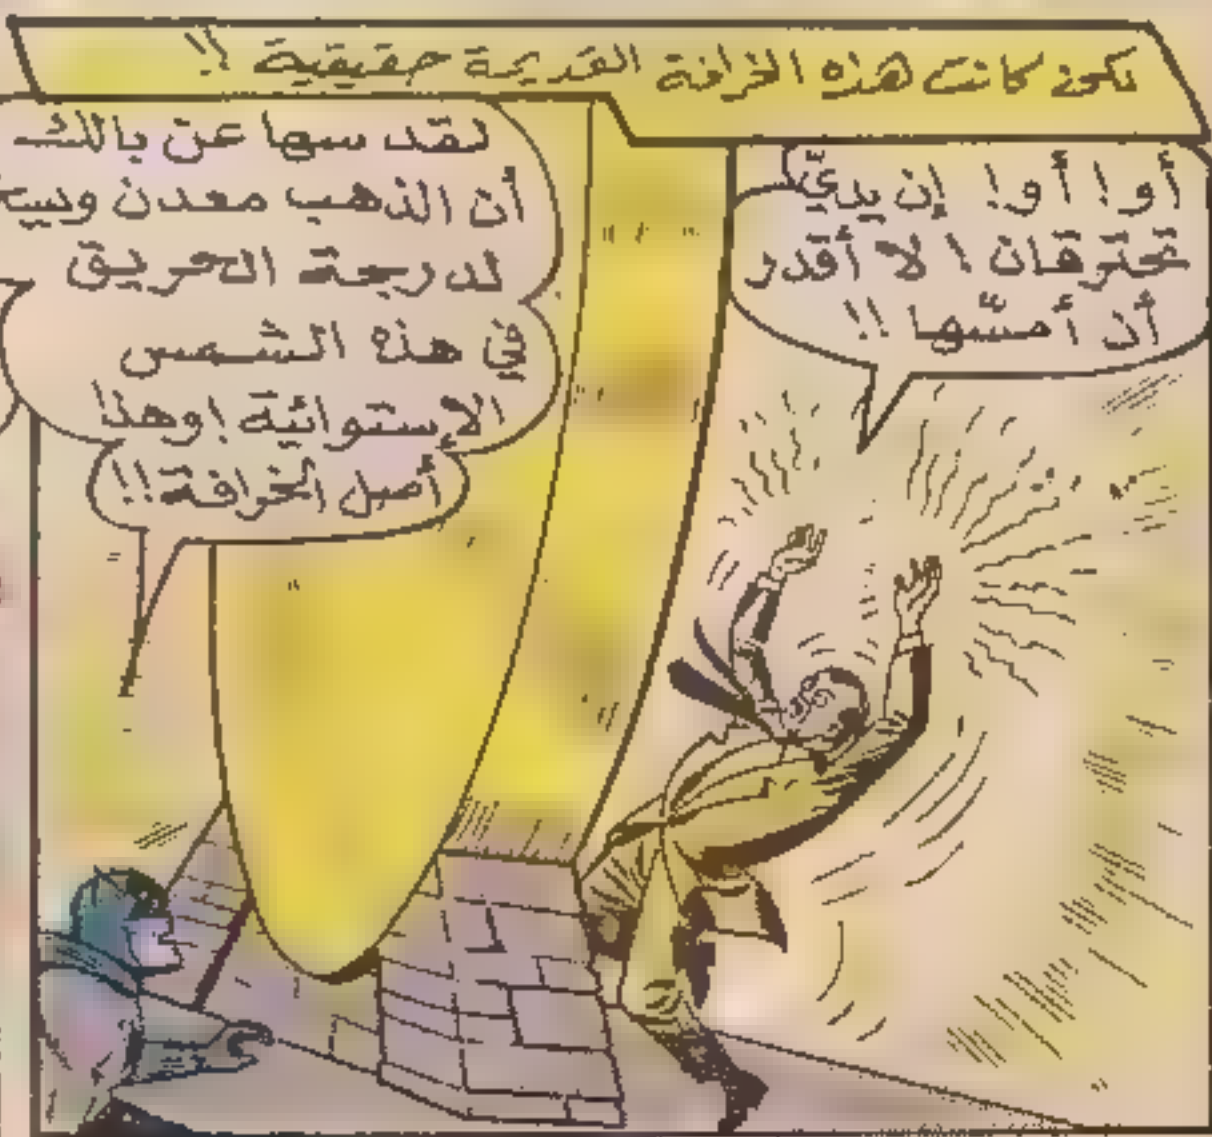 لكن كانت هذه الخرافة القديمة حقيقية !!
أو! أو! إن يديّ
تحترقان ! لا أقدر
أن أمسّها !!
لقد سها عن بالك
أن الذهب معدن
لدرجة الحريق
في هذه الشمس
الإستوائية ! وهذا
أصل الخرافة !!